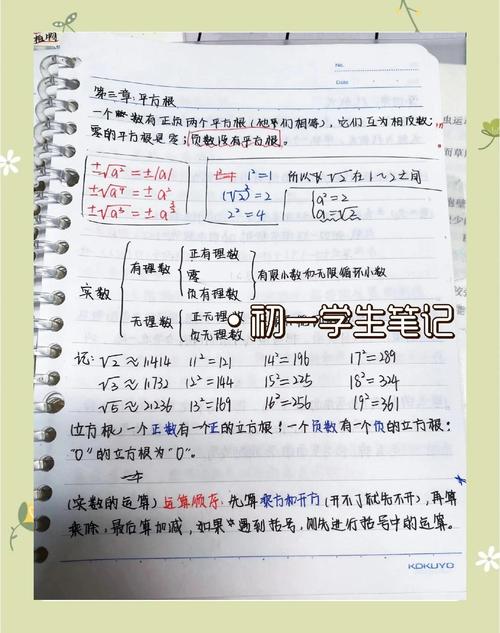 No.
Date
第三章:平方根
一个数有正负两个平方根(他们相等),它们互为相反数;
零的平方根是零;负数没有平方根。
±√a² = ±|a|
±√a⁴ = ± a²
±√a³ = ± a^(3/2)
1² = 1
(√2)² = 2
2² = 4
所以√2在1~2之间
a² = 2
a = √2
实数
有理数
正有理数
零
负有理数
有限小数和无限循环小数
无理数
正无理数
负无理数
初一学生笔记
记: √2 ≈ 1.414 11² = 121 14² = 196 17² = 289
√3 ≈ 1.732 12² = 144 15² = 225 18² = 324
√5 ≈ 2.236 13² = 169 16² = 256 19² = 361
(立方根) 一个正数有一个正的立方根;一个负数有一个负的立方根;
"0"的立方根为"0"。
(实数的运算) 运算顺序:先算乘方和开方(开不了就先不开),再算
乘除,最后算加减,如果遇到括号,则先进行括号中的运算。
KOKUYO